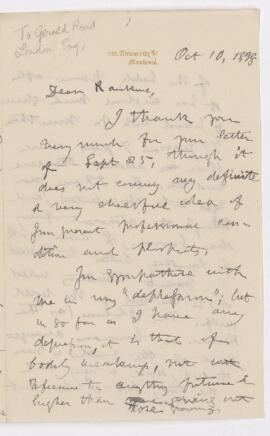 To Gerald Road
London Eng.
University St
Montreal.
Oct 10, 1898
Dear Rankine,
I thank you
very much for your letter
of Sept 25, though it
does not convey any definite
& very cheerful idea of
your present professional con-
dition and prospects.
You sympathise with
me in my "depression"; but
in so far as I have any
depression, it is that of
bodily weakness, not
to anything
higher than